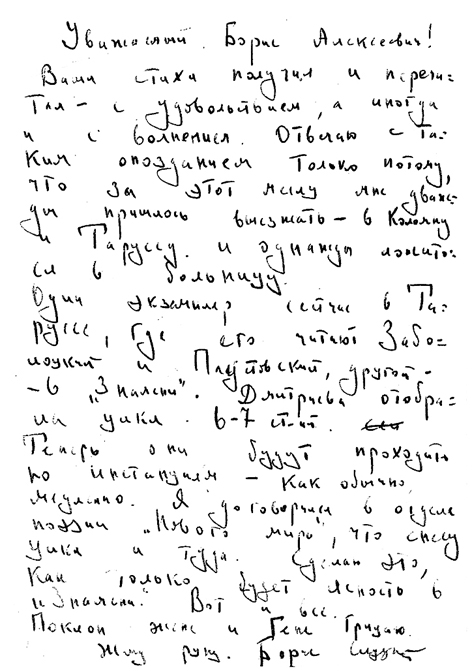 Уважаемый Борис Алексеевич!
Ваши стихи получил и перечи=
тал – с удовольствием, а иногда
и с волнением. Отвечаю с та=
ким опозданием только потому,
что за этот месяц мне дваж=
ды пришлось выезжать – в Коломну
и Таруссу и однажды ложить=
ся в больницу.
Один экземпляр сейчас в Та=
руссе, где его читают Забо=
лоцкий и Паустовский, другой –
– в "Знамени". Дмитриева отобра=
ла цикл. 6-7 ст-ий.
Теперь они будут проходить
по инстанциям – как обычно,
медленно. Я договорился в отделе
поэзии "Нового мира", что снесу
цикл и туда. Сделаю это,
как только будет ясность в
"Знамени". Вот и все.
Поклон жене и Гене
Жму руку. Борис Слуцкий